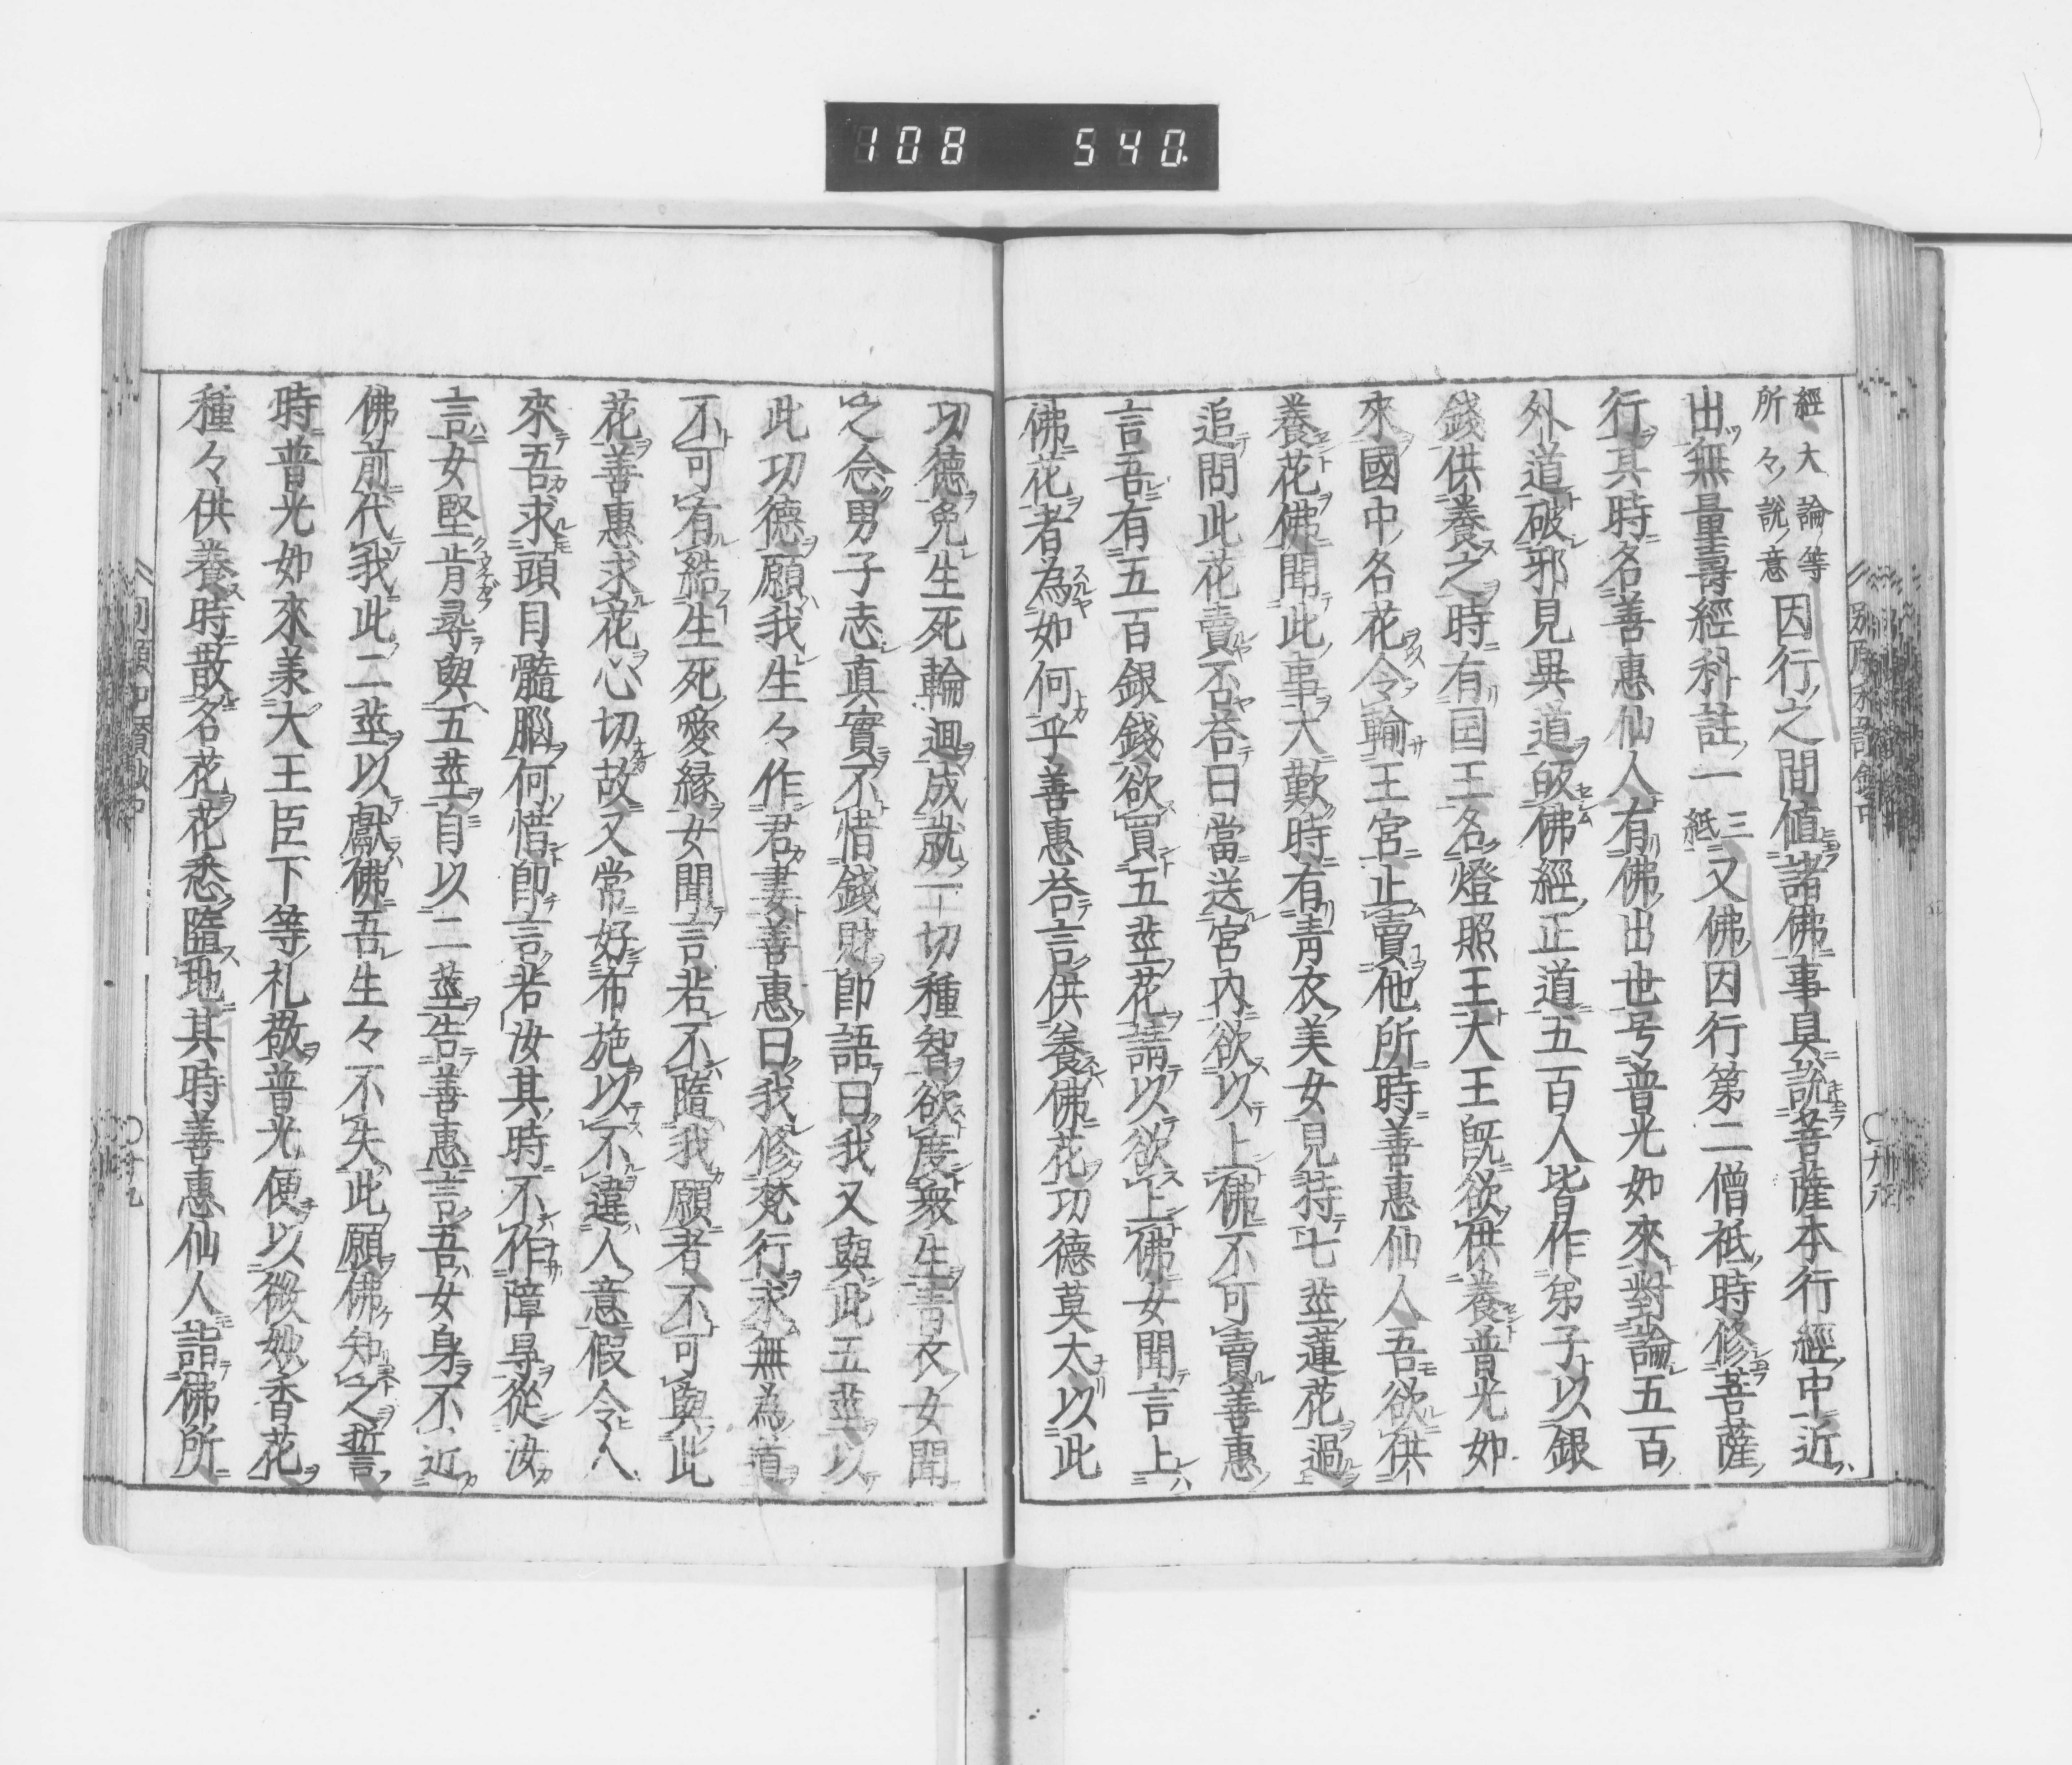 108 540
經大論等
所々說意
因行之間値諸佛事具說菩薩本行經中近
出無量壽經科註一三紙又佛因行第二僧祇時修菩薩
行其時名善惠仙人有佛出世号普光如來對論五百
外道破邪見異道皈佛經正道五百人皆作弟子以銀
錢供養之時有国王名燈照王大王既欲供養普光如
來國中名花令輸王宮止賣他所時善惠仙人吾欲供
養花佛聞此事大歎時有青衣美女見持七莖蓮花過
追問此花賣否荅曰當送宮內欲以上佛不可賣善惠
言吾有五百銀錢欲買五莖花請以欲上佛女聞言上
佛花者為如何乎善惠荅言供養佛花功德莫大以此
功德免生死輪迴成就一切種智欲度衆生青衣女聞
之念男子志真實不惜錢財卽語曰我又與此五莖以
此功德願我生々作君妻善惠曰我修梵行求無為道
不可有結生死愛縁女聞言若不隨我願者不可與此
花善惠求花心切故又常好布施以不違人意假令人
來吾求頭目髓腦何惜卽言若汝其時不作障㝵從汝
言女堅肯尋與五莖自以二莖告善惠言吾女身不近
佛前代我此二莖以獻佛吾生々不失此願佛知之誓
時普光如來羕大王臣下等礼敬普光便以微妙香花
種々供養時散名花花悉隨地其時善惠仙人詣佛所